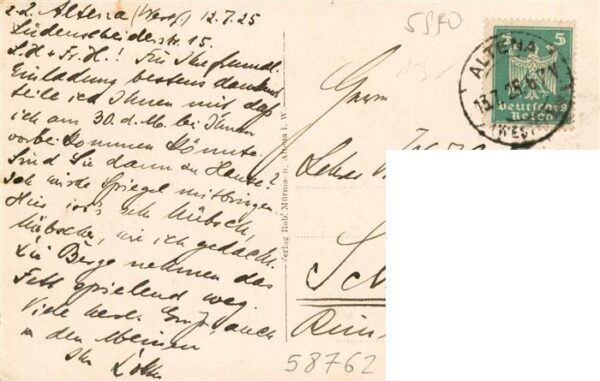 z.Z. Altena (Westf.) 12.7.25
Lüdenscheiderstr. 15.
L. H. + Fr. H.! Für Ihre freundl.
Einladung bestens dankend
teile ich Ihnen mit, daß
ich am 30. d. M. bei Ihnen
vorbei kommen könnte.
Sind Sie dann zu Hause?
Ich würde Spiegel mitbringen.
Hier ist's sehr hübsch,
hübscher, wie ich gedacht.
Die Berge nehmen das
Fett spielend weg.
Viele herzl. Grüße auch
v. den Meinen
Ihr
Verlag Rob. Mürmann, Altena i. W.
5880
Herrn
Lehrer
Rum-
58762
5 5
Deutsches
Reich
ALTENA
13.7.25
(WESTF